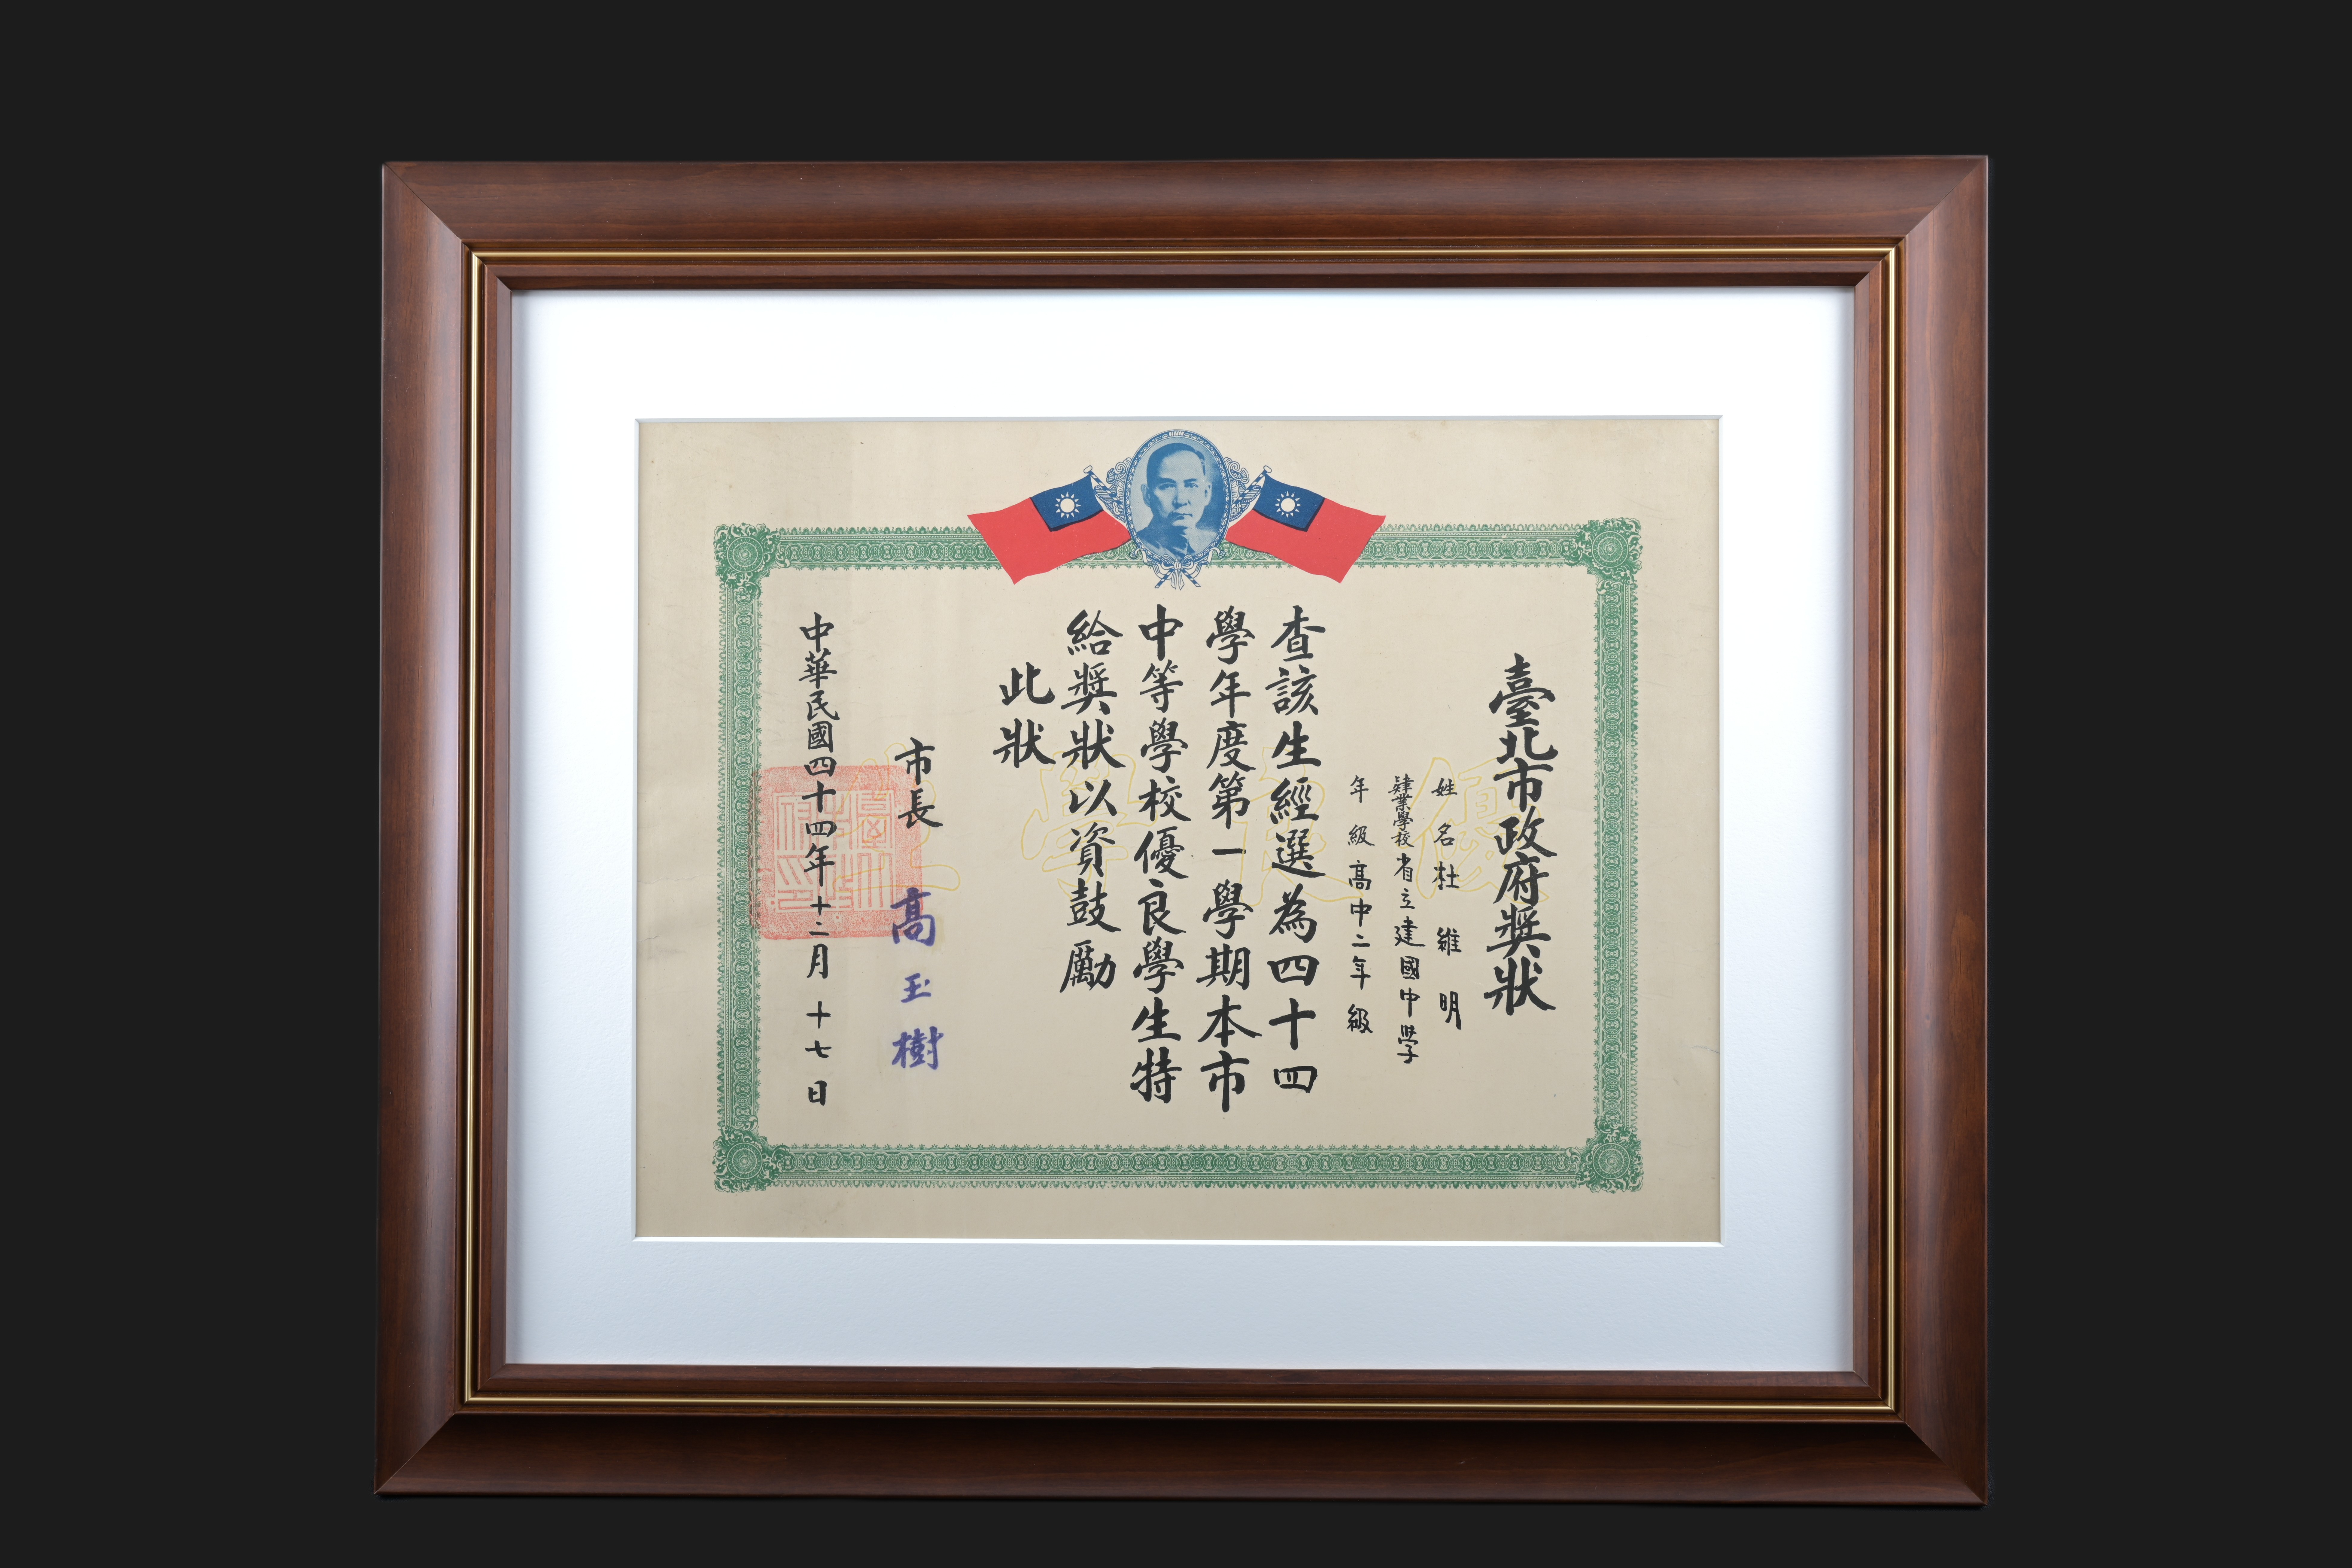 臺北市政府獎狀
姓名杜維明
肄業學校省立建國中學
年級高中二年級
查該生經選為四十四
學年度第一學期本市
中等學校優良學生特
給獎狀以資鼓勵
此狀
市長 高玉樹
中華民國四十四年十二月十七日
優良學生